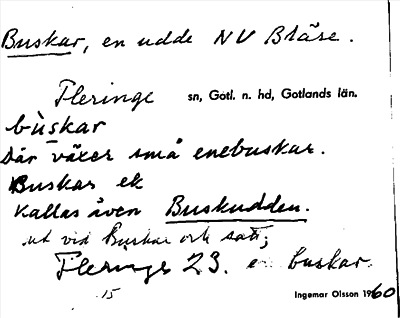 Buskar, en udde NV Bläse.
Fleringe sn, Gotl. n. hd, Gotlands län.
bùskar
Där växer små enebuskar.
Buskar ek
Kallas även Buskudden.
ut vid Buskar och satt;
Fleringe 23. en buskar.
15 Ingemar Olsson 1960